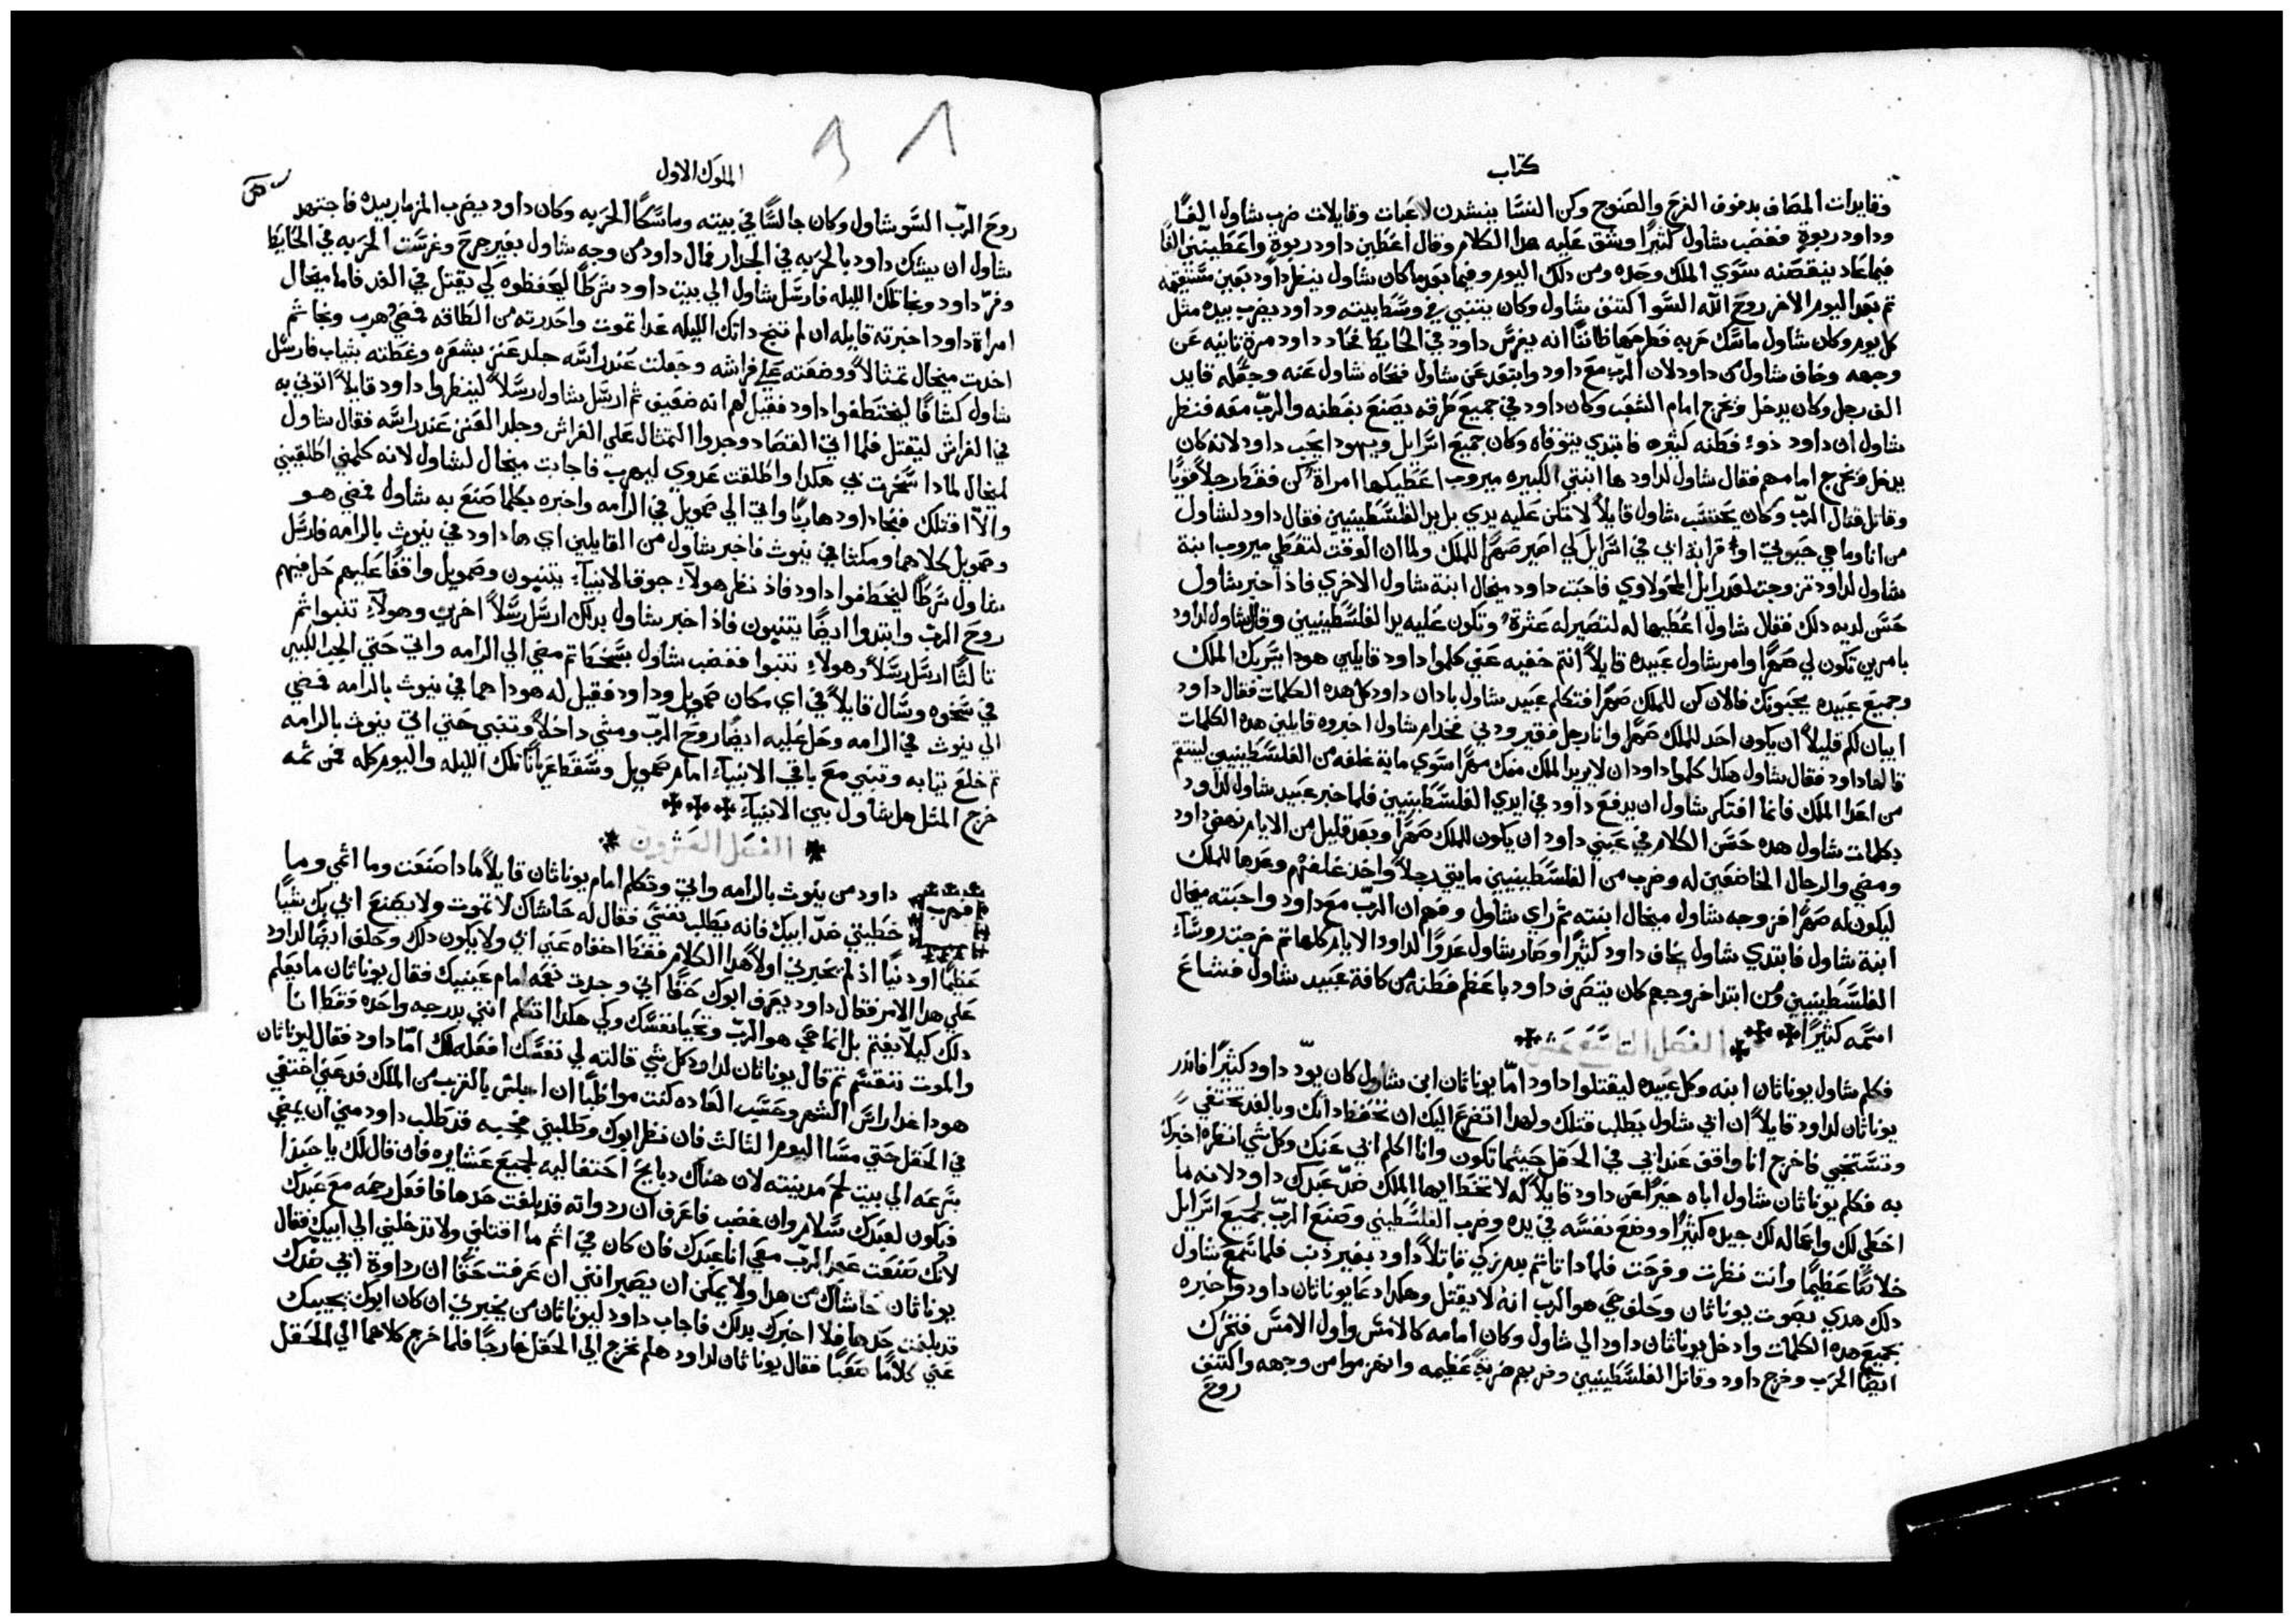 كتاب
وقايدات المصاف بدفوف الفرح والصنوج وكن النسا ينشدن لاعبات وقايلات ضرب شاول الفًا
وداود ربوة فغضب شاول كثيرًا وشق عليه هدا الكلام وقال اعطين داود ربوة واعطينني الفًا
فماعاد ينقصنه سوي الملك وحده ومن دلك اليوم وفيما بعد ما كان شاول ينظر داود بعين مستقيمه
ثم بعد اليوم الاخر روح الله السو اكتنف شاول وكان يتنبي في وسط بيته وداود يضرب بيده مثل
كل يوم وكان شاول ماسك حربه فطرحها ظانًا انه يغرس داود في الحايط فحاد داود مرة تانيه عن
وجهه وخاف شاول من داود لان الرب مع داود وابتعد عن شاول فنحاه شاول عنه وجعله قايد
الف رجل وكان يدخل ويخرج امام الشعب وكان داود في جميع طرقه يصنع بفطنه والرب معه فنظر
شاول ان داود ذوء فطنه كثيره فابتدي يتوقاه وكان جميع اسرايل ويهودا يحب داود لانه كان
يدخل ويخرج امامهم فقال شاول لداود ها ابنتي الكبيره ميروب اعطيكها امراة كن فقط رجلاً قويًا
وقاتل قتال الرب وكان يحتسب شاول قايلاً لا تكن عليه يدي بل يد الفلسطينيين فقال داود لشاول
من انا وما هي حيوتي او قرابة ابي في اسرايل لكي اصير صهرًا للملك ولما ان الوقت لتعطي ميروب ابنة
شاول لداود تزوجت لعدرايل المحولاوي فاحبت داود ميخال ابنة شاول الاخري فاذ اخبر شاول
حسن لديه دلك فقال شاول اعطيها له لتصير له عثرة وتكون عليه يد الفلسطينيين وقال شاول لداود
بامرين تكون لي صهرًا وامر شاول عبيده قايلاً انتم خفيه عني كلموا داود قايلين هودا يسر بك الملك
وجميع عبيده يحبونك فالان كن للملك صهرًا فتكلم عبيد شاول بادان داود كل هده الكلمات فقال داود
ايبان لكم قليلاً ان يكون احد للملك صهرًا وانا رجل فقير ودني فخدام شاول اخبروه قايلين هده الكلمات
قالها داود فقال شاول هكدا كلموا داود ان لا يريد الملك منك مهرًا سوي ماية غلفه من الفلسطينيين لينتقم
من اعدا الملك فانما افتكر شاول ان يدفع داود في ايدي الفلسطينيين فلما خبر عبيد شاول لداود
بكلمات شاول هده حسن الكلام في عيني داود ان يكون للملك صهرًا وبعد قليل من الايام نهض داود
ومضي والرجال الخاضعين له وضرب من الفلسطينيين مايتي رجلاً واخد غلفهم وعدها للملك
ليكون له صهرًا فزوجه شاول ميخال ابنته ثم راي شاول وفهم ان الرب مع داود واحبته ميخال
ابنة شاول فابتدي شاول يخاف داود كثيرًا وصار شاول عدوًا لداود الايام كلها ثم خرجت روساء
الفلسطينيين ومن ابتدا خروجهم كان يتصرف داود باعظم فطنه من كافة عبيد شاول فشاع
اسمه كثيرًا
الفصل التاسع عشر
فكلم شاول يوناثان ابنه وكل عبيده ليقتلوا داود امّا يوناثان ابن شاول كان يودّ داود كثيرًا فاندر
يوناثان لداود قايلاً ان ابي شاول يطلب قتلك ولهدا اتضرع اليك ان تحفظ داتك وبالغد تختفي
وتستخبي فاخرج انا واقف عند ابي في الحقل حيثما تكون وانا اكلم ابي عنك وكل شي انظره اخبرك
به فكلم يوناثان شاول اباه خيرًا عن داود قايلاً له لا تخط ايها الملك ضدّ عبدك داود لانه ما
اخطي لك واعماله لك جيده كثيرًا ووضع نفسه في يده وضرب الفلسطيني وصنع الرب لجميع اسرايل
خلاصًا عظيمًا وانت نظرت وفرحت فلمادا تاثم بدم زكي قاتلاً داود بغير ذنب فلما سمع شاول
دلك هدي بصوت يوناثان وحلف حي هو الرب انه لا يقتل وهكدا دعا يوناثان داود واخبره
بجميع هده الكلمات وادخل يوناثان داود الي شاول وكان امامه كالامس واول الامس فتحرك
ايضًا الحرب وخرج داود وقاتل الفلسطينيين وضربهم ضربةً عظيمه وانهزموا من وجهه واكتنف
روح
الملوك الاول
روح الرب السو شاول وكان جالسًا في بيته وماسكًا الحربه وكان داود يضرب المزمار بيده فاجتهد
شاول ان يشك داود بالحربه في الجدار فمال داود من وجه شاول بغير جرح وغرست الحربه في الحايط
وفرّ داود ونجا تلك الليله فارسل شاول الي بيت داود شرطًا ليحفظوه لكي يقتل في الغد فاما ميخال
امراة داود اخبرته قايله ان لم تنج داتك الليله غدا تموت واحدرته من الطاقه فمضي وهرب ونجا ثم
اخدت ميخال تمثالاً ووضعته علي فراشه وجعلت عند راسه جلد عنز بشعره وغطته بثياب فارسل
شاول كشافًا ليختطفوا داود فقيل لهم انه ضعيف ثم ارسل شاول رسلاً لينظروا داود قايلاً اتوني به
في الفراش ليقتل فلما اتي القصاد وجدوا التمثال علي الفراش وجلد العنز عند راسه فقال شاول
لميخال لمادا سخرت بي هكدا واطلقت عدوي ليهرب فاجابت ميخال لشاول لانه كلمني اطلقيني
والاّ اقتلك فنجا داود هاربًا واتي الي صمويل في الرامه واخبره بكلما صنع به شاول فمضي هو
وصمويل كلاهما ومكثا في نيوث فاخبر شاول من القايلين اي ها داود في نيوث بالرامه فارسل
شاول شرطًا ليخطفوا داود فاذ نظر هولاء جوق الانبياء يتنبون وصمويل واقفًا عليهم حل فيهم
روح الرب وابتدوا ايضًا يتنبون فاذ اخبر شاول بدلك ارسل رسلاً اخرين وهولاء تنبوا ثم
تالثًا ارسل رسلاً وهولاء تنبوا فغضب شاول بسخط ثم مضي الي الرامه واتي حتي الجب الكبير
في سخوه وسال قايلاً في اي مكان صمويل وداود فقيل له هودا هما في نيوث بالرامه فمضي
الي نيوث في الرامه وحل عليه ايضًا روح الرب ومشي داخلاً وتنبي حتي اتي نيوث بالرامه
ثم خلع تيابه وتنبي مع باقي الانبياء امام صمويل وسقط عريانًا تلك الليله واليوم كله فمن ثمه
خرج المثل هل شاول بين الانبياء
الفصل العشرون
فهرب داود من نيوث بالرامه واتي وتكلم امام يوناثان قايلاً مادا صنعت وما اثمي وما
خطيتي ضدّ ابيك فانه يطلب نفسي فقال له حاشاك لا تموت ولا يصنع ابي بك شيًا
عظيمًا او دنيًا اذ لم يخبرني اولاً هدا الكلام فقط اخفاه عني ابي ولا يكون دلك وحلف ايضًا لداود
علي هدا الامر فقال داود يعرف ابوك حقًا اني وجدت نعمه امام عينيك فقال يوناثان ما يعلم
دلك كيلا يغتم بل انما حي هو الرب وتحيا نفسك ولكي هكدا اتكلم انني بدرجه واحده فقط انا
والموت ننقسم ثم قال يوناثان لداود كل شي قالته لي نفسك افعله لك امّا داود فقال ليوناثان
هودا غدا راس الشهر وحسب العاده كنت مواظبًا ان اجلس بالقرب من الملك فدعني اختفي
في الحقل حتي مسا اليوم الثالث فان نظر ابوك وطلبني فجيبه قد طلب داود مني ان يمضي
بسرعه الي بيت لحم مدينته لان هناك دبايح احتفاليه لجميع عشايره فان قال لك يا حبدا
فيكون لعبدك سلام وان غضب فاعرف ان رداوته قد بلغت حدها فافعل رحمه مع عبدك
لانك صنعت عهد الرب معي انا عبدك فان كان في اثم ما اقتلني ولا تدخلني الي ابيك فقال
يوناثان حاشاك من هدا ولا يمكن ان يصير انني ان عرفت حقًا ان رداوة ابي ضدك
قد بلغت حدها فلا اخبرك بدلك فاجاب داود ليوناثان من يخبرني ان كان ابوك يجيبك
عني كلامًا صعبًا فقال يوناثان لداود هلم نخرج الي الحقل خارجًا فلما خرج كلاهما الي الحقل